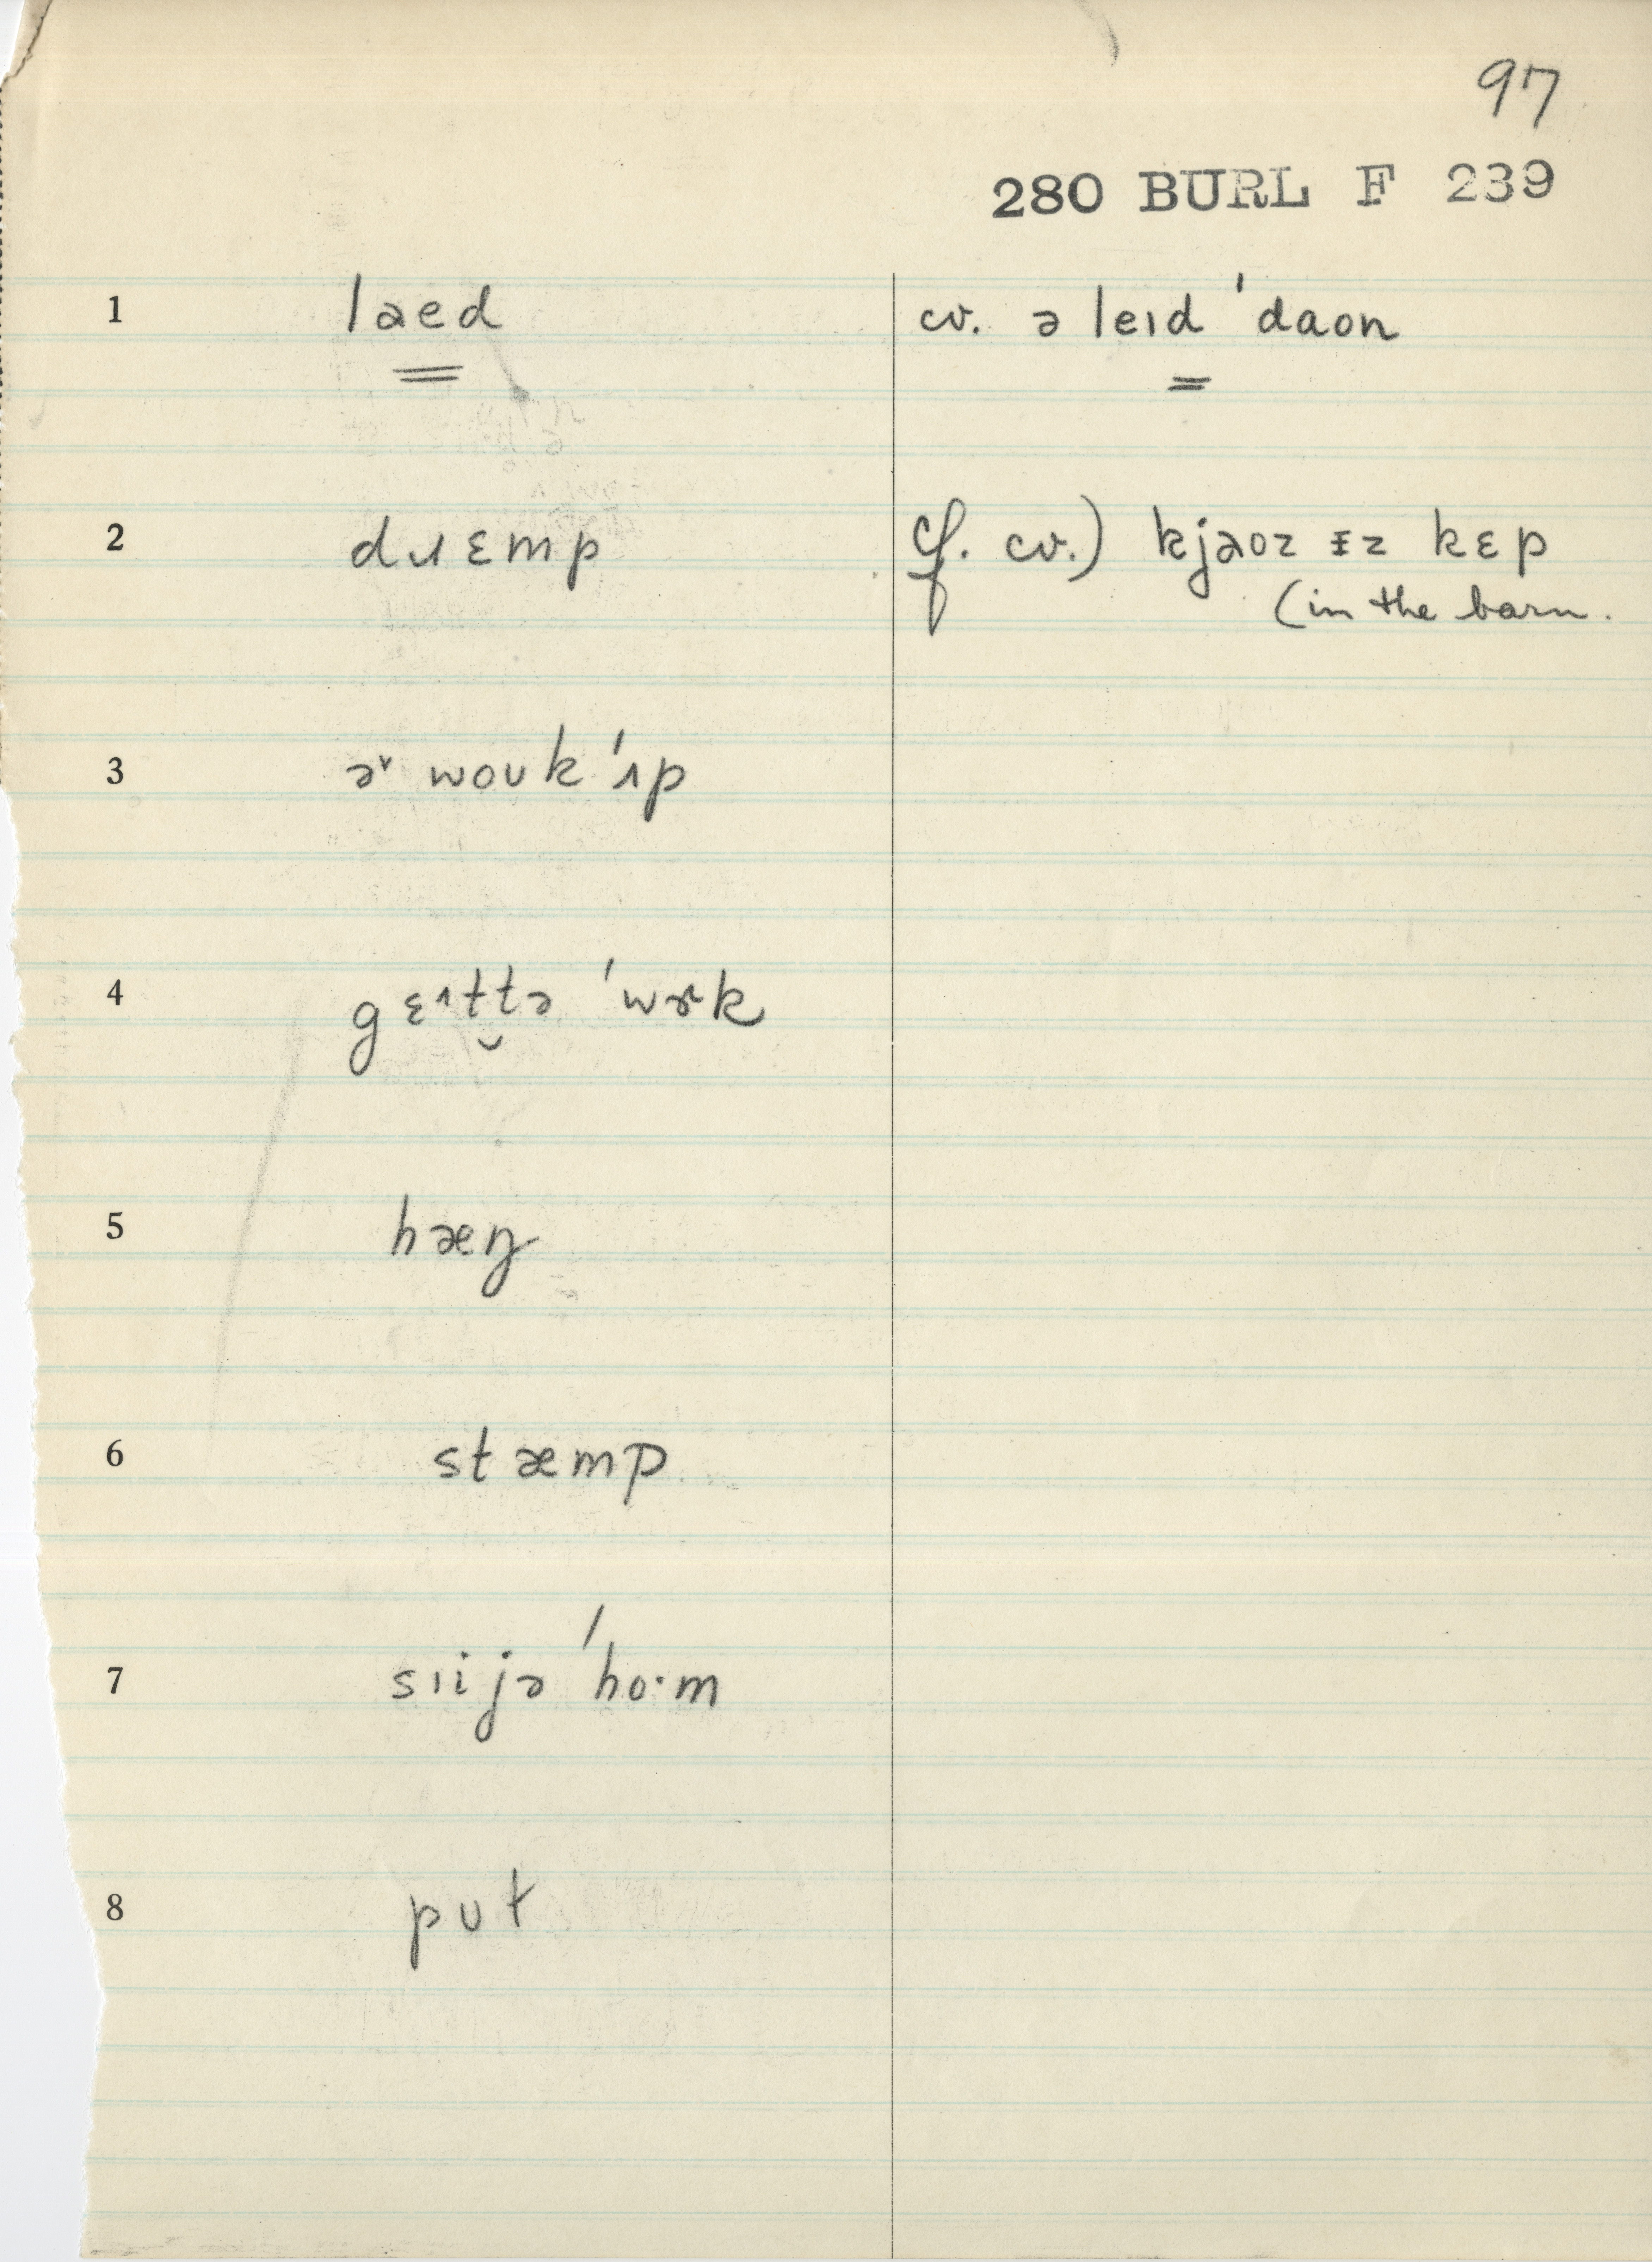 97
280 BURL F 239
1 læed cv. ə leɪd ˈdaon
2 dɹɛmp cf. cv.) kjaoz ɪz kɛp
(in the barn.
3 ɚ woʊk ˈʌp
4 gɛɪt tə ˈwɝk
5 hæŋ
6 stæmp
7 sɪi jə ˈho·m
8 pʊt